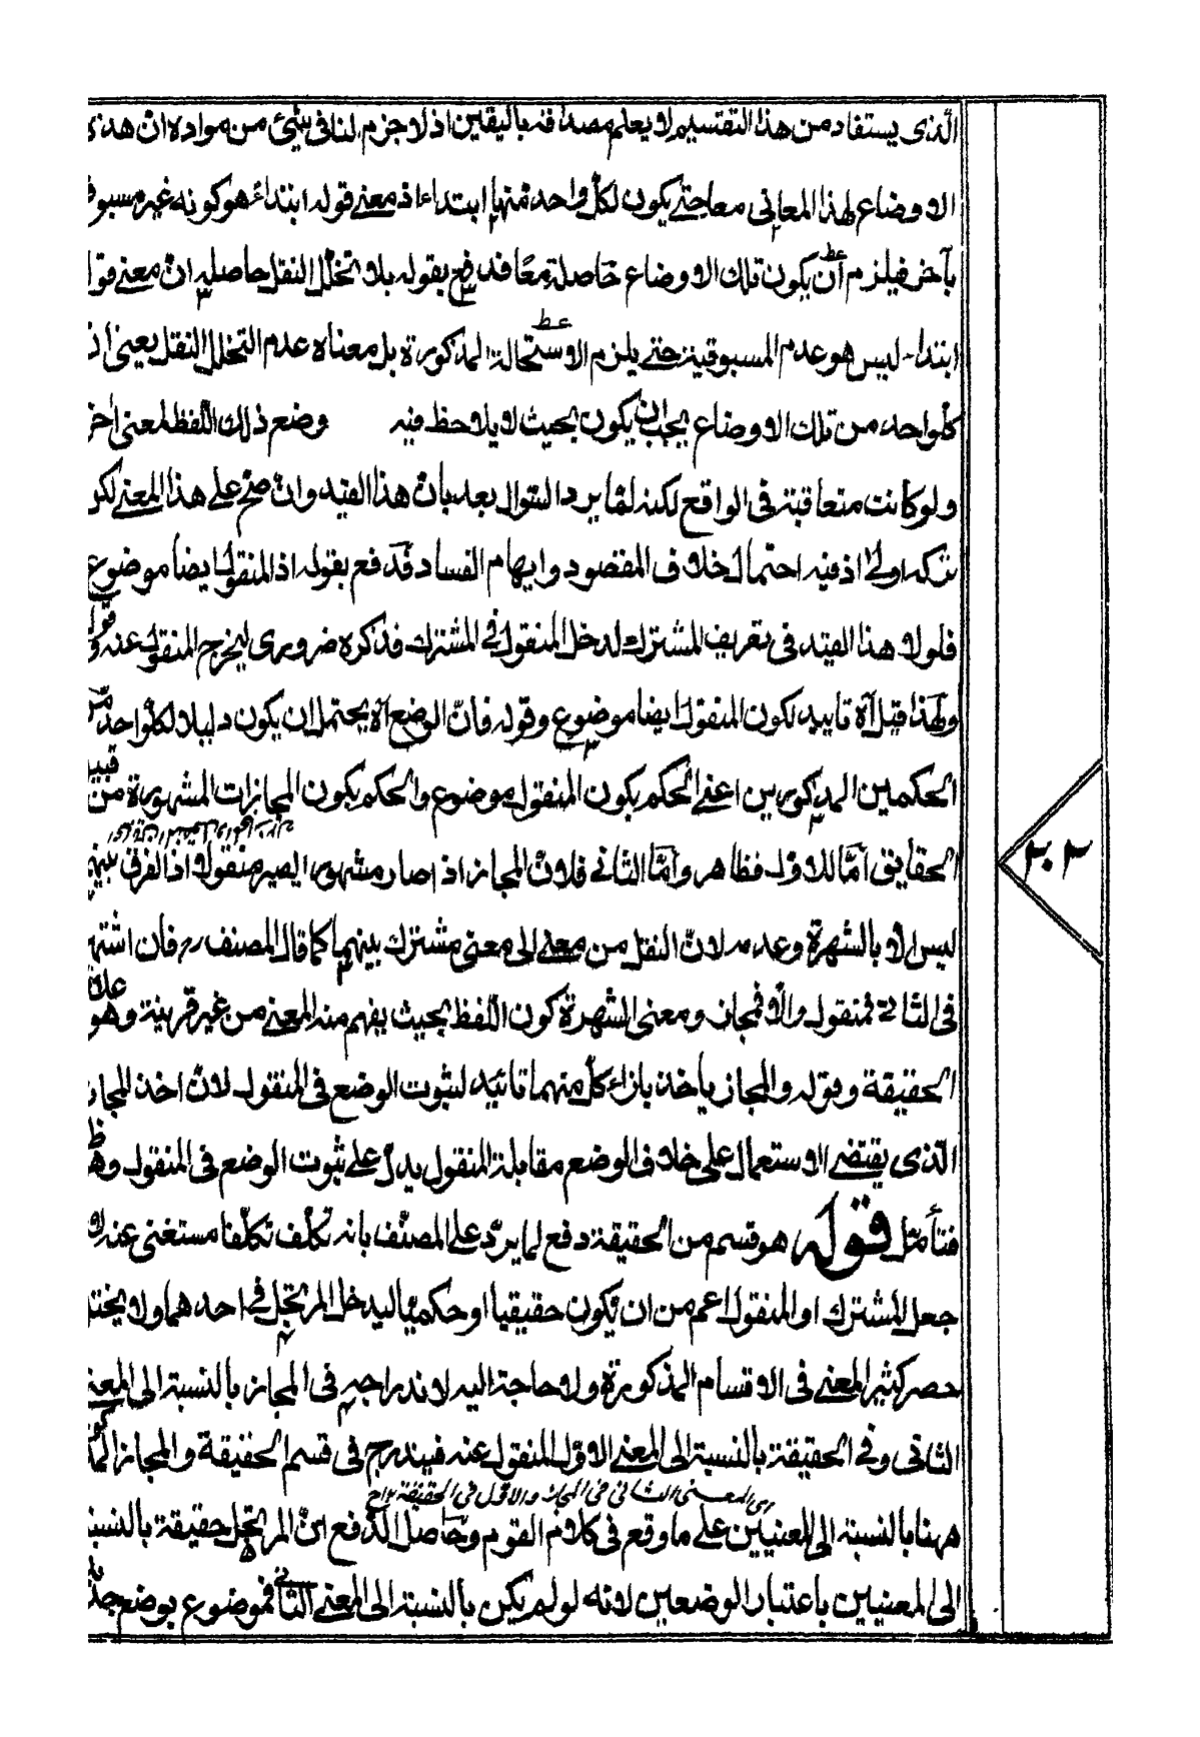 الذى يستفاد من هذا التقسيم لا يعلم مصداقه باليقين اذ لا جزم لنا فى شيئ من مواده ان هذه
الاوضاع لهذا المعانى معا حتى يكون لكل واحد منها ابتداء اذ معنى قوله ابتداء هو كونه غير مسبوق
بآخر فيلزم ان يكون تلك الاوضاع حاصلة معا فدفع بقوله بلا تخلل النقل حاصله ان معنى قوله
ابتداء ليس هو عدم المسبوقية حتى يلزم الاستحالة المذكورة بل معناه عدم التخلل النقل يعنى ان
كل واحد من تلك الاوضاع يجب ان يكون بحيث لا يلاحظ فيه وضع ذلك اللفظ لمعنى اخر
ولو كانت متعاقبة فى الواقع لكنه لما يرد السوال بعد بان هذا القيد وان صح على هذا المعنى لكن
تركه اولى اذ فيه احتمال خلاف المقصود وايهام الفساد فدفع بقوله اذ المنقول ايضا موضوع
فلولا هذا القيد فى تعريف المشترك لدخل المنقول فى المشترك فذكره ضرورى ليخرج المنقول عنه وقوله
ولهذا قيل آه تاييد لكون المنقول ايضا موضوع وقوله فان الوضع آه يحتمل ان يكون دليلا لكل واحد من
الحكمين المذكورين اعنى الحكم بكون المنقول موضوع والحكم بكون المجازات المشهورة من قبيل
الحقايق اما للاول فظاهر واما الثانى فلان المجاز اذا صار مشهورا يصير منقولا اذ الفرق بينهما
ليس الا بالشهرة وعدمه لان النقل من معنى الى معنى مشترك بينهما كما قال المصنف رح فان اشتهر
فى الثانى فمنقول والا فمجاز ومعنى الشهرة كون اللفظ بحيث يفهم منه المعنى من غير قرينة وهو علامة
الحقيقة وقوله والمجاز ياخذ بازاء كل منهما تائيد لثبوت الوضع فى المنقول لان اخذ المجاز
الذى يقتضى الاستعمال على خلاف الوضع مقابلة المنقول يدل على ثبوت الوضع فى المنقول وهذا ظ
فتأمل قوله هو قسم من الحقيقة دفع لما يرد على المصنف بانه تكلف تكلفا مستغنى عنه
جعل المشترك او المنقول اعم من ان يكون حقيقيا او حكميا ليدخل المرتجل فى احدهما ولا يختل
حصر كثير المعنى فى الاقسام المذكورة ولا حاجة اليه لاندراجه فى المجاز بالنسبة الى المعنى
الثانى وفى الحقيقة بالنسبة الى المعنى الاول المنقول عنه فيندرج فى قسم الحقيقة والمجاز المذكور
اى المعنى الثانى فى المجاز والاول فى الحقيقة
ههنا بالنسبة الى المعنيين على ما وقع فى كلام القوم وحاصل الدفع ان المرتجل حقيقة بالنسبة
الى المعنيين باعتبار الوضعين لانه لو لم يكن بالنسبة الى المعنى الثانى فموضوع بوضع جديد
٢٠٢